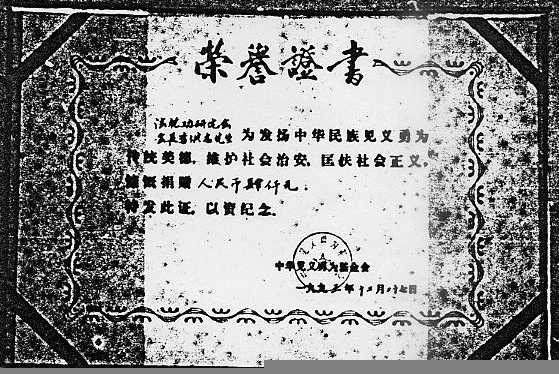 荣誉證書
法轮功研究会
会长李洪志先生 为发扬中华民族见义勇为
传统美德，维护社会治安，匡扶社会正义，
慷慨捐赠 人民币 肆仟元。
特发此证，以资纪念。
中华见义勇为基金会
一九九三年十二月廿七日